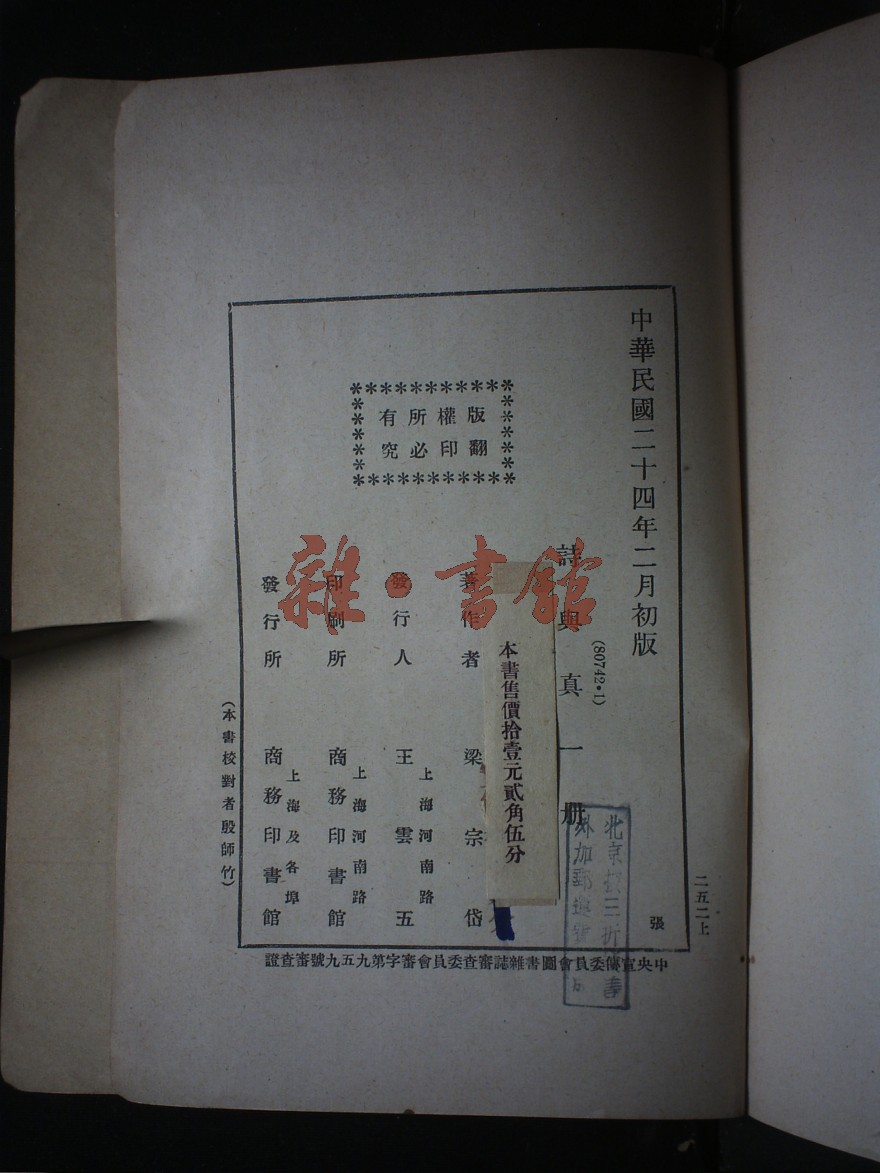 中華民國二十四年二月初版
(80742·1)
詩與真一冊
本書售價拾壹元貳角伍分
著作者 梁宗岱
發行人 王雲五
上海河南路
印刷所 商務印書館
上海河南路
發行所 商務印書館
上海及各埠
版權所有
翻印必究
(本書校對者殷師竹)
二五二上
張
中央宣傳委員會圖書雜誌審查委員會審字第九五九號審查證
雜·書館
北京
外加郵